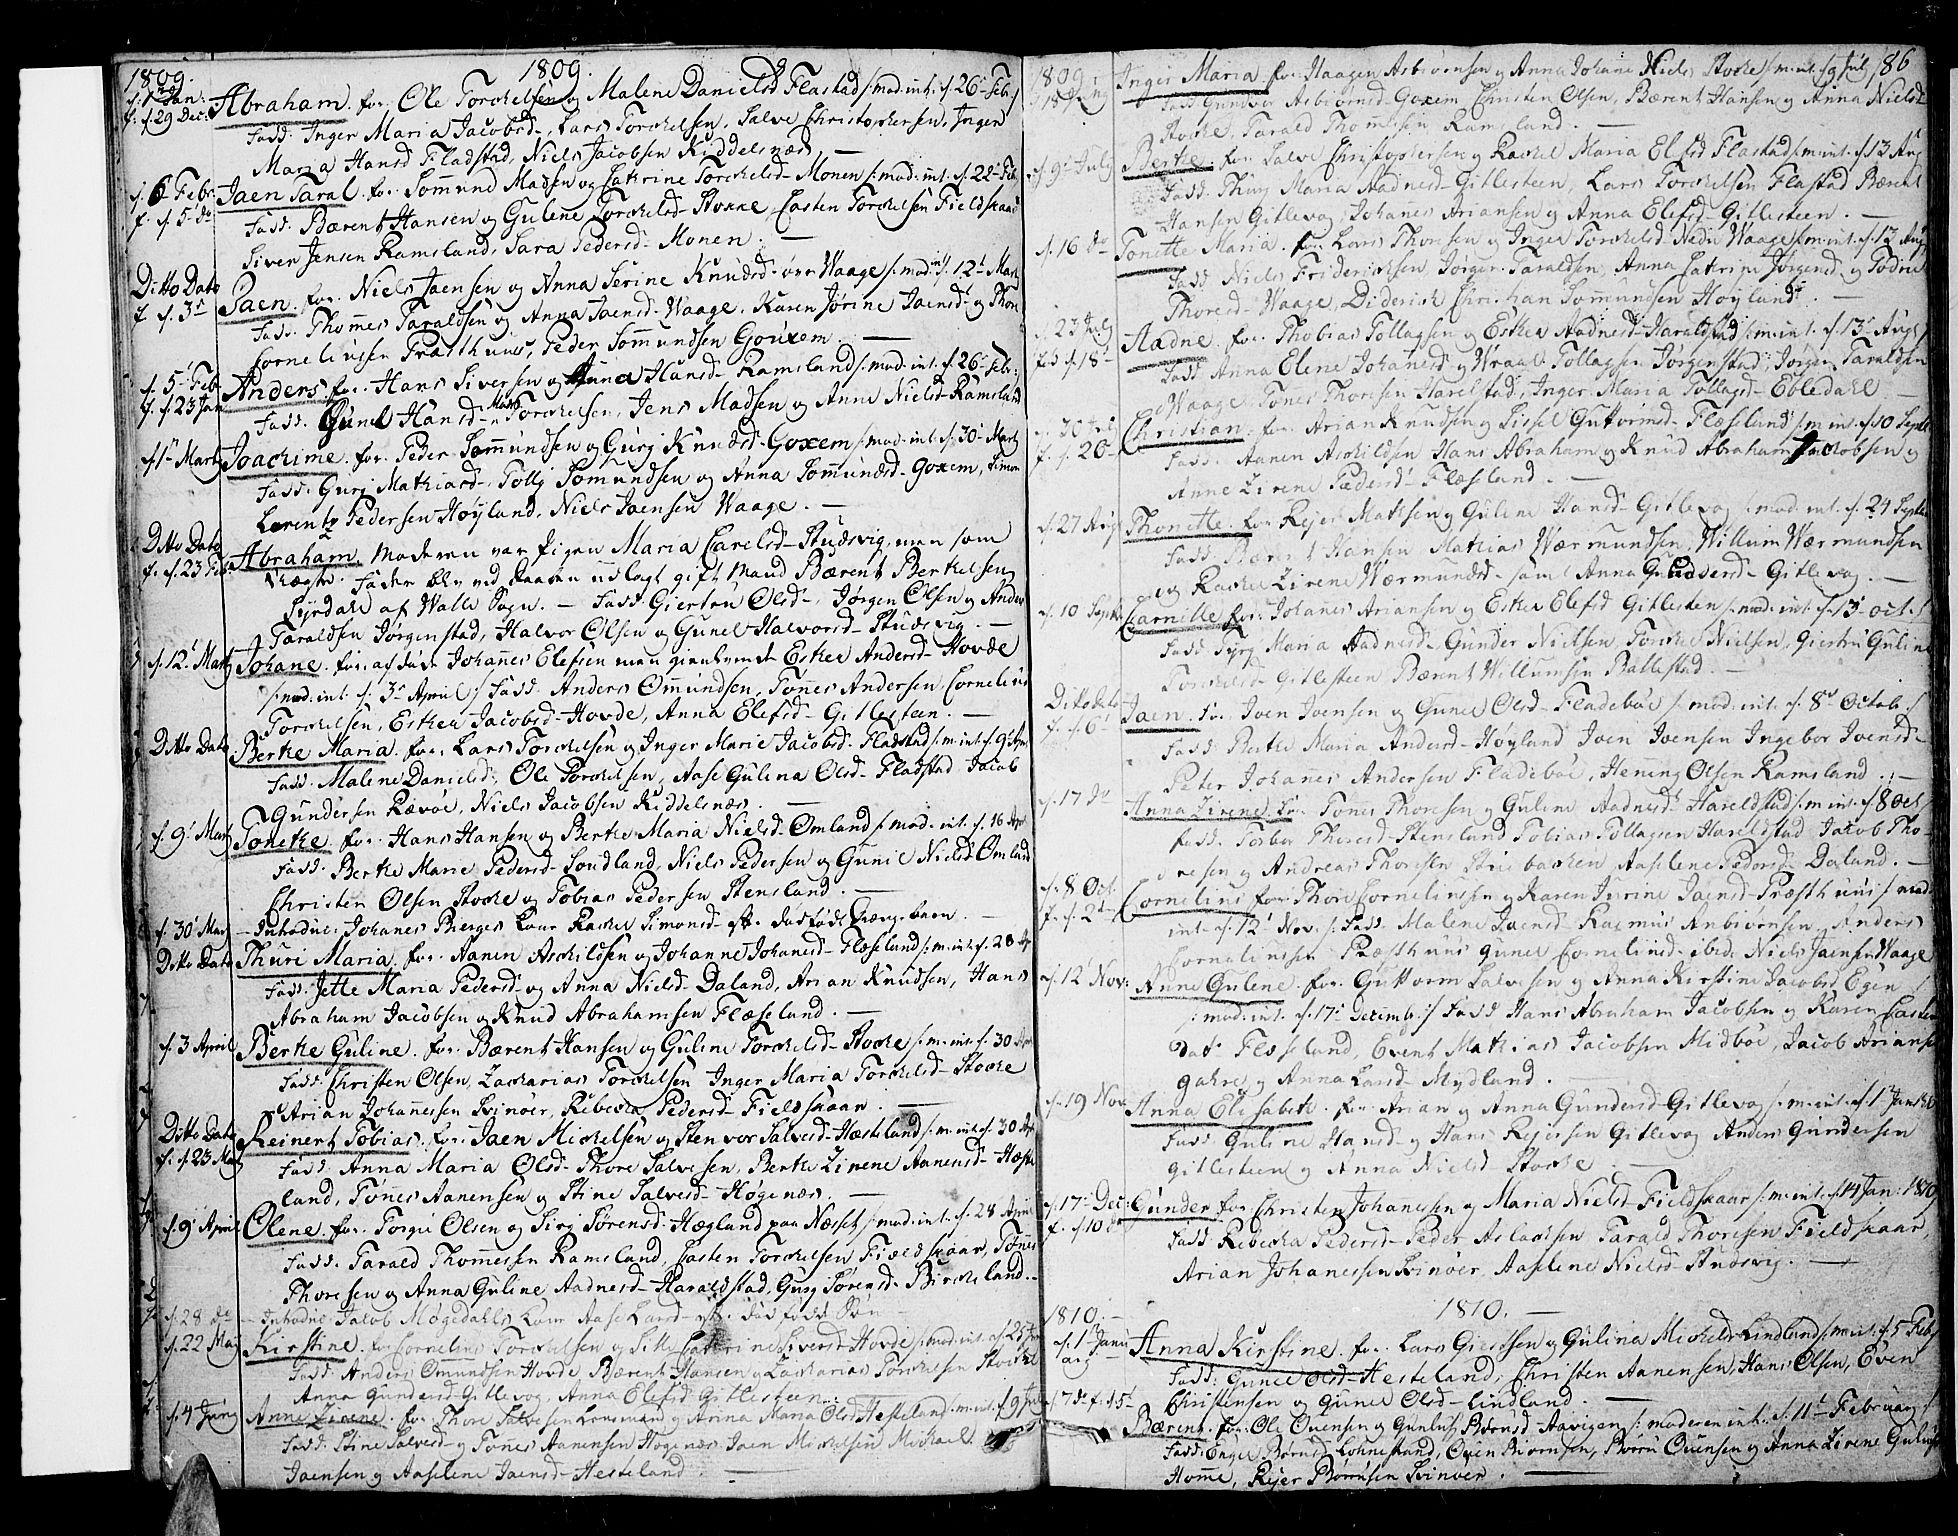 1809.
1809.
d. 1 Jan: Abraham. for: Ole Torckelsen og Malene Danielsd Flastad /: mod: int: d. 26 Feb: /
f. d. 29 Dec: Fadd: Inger Maria Jacobsd, Lars Torckelsen, Salve Christophersen, Inger
Maria Hansd Fladstad, Niels Jacobsen Kiddelsnæs. —
d. 6 Febr: Jaen Taral. for: Sommund Madsen og Catrine Torckelsd Monen /: mod: int: d. 22 Feb:
f. d. 5 do Fadd: Bærent Hansen og Gulene Torckelsd Stocke, Casten Torckelsen Fieldskaar
Siver Jensen Ramsland, Sara Pedersd Monen. —
Ditto Dato Jaen. for: Niels Jaensen og Anna Serine Knudsd øvre Waage /: mod: int: d. 12 Mart
f. d. 3 Fadd: Thommes Taraldsen og Anna Jaensd Waage, Karen Jørine Jaensd og Thore
Corneliussen Præsthuus, Peder Sommundsen Gouxem. —
d. 5 Feb: Anders. for: Hans Siversen og Anna Hansd Ramsland /: mod: int: d. 26 Febr:
f. d. 23 Jan Fadd: Gunel Hansd Mads Torckelsen, Jens Madsen og Anne Nielsd Ramsland
d. 1 Marti Joachime. for: Peder Sommundsen og Gurj Knudsd Goxem /: mod: int: d. 30 Mart
Fadd: Gurj Mathiasd, Tollj Somundsen og Anna Sommundsd Goxem, Simon
Larentz Pedersen Høyland, Niels Jaensen Waage. —
Ditto Dato Abraham. Moderen var Pigen Maria Carelsd Studsvig, men som
f. d. 23 Feb: Fader blev ved Daaben udlagt gift Mand Bærent Berthelsen
Lyrdahl af Walle Sogn. — Fadd: Giertru Olsd, Jørgen Olsen og Anders
Taraldsen Jørgenstad, Halvor Olsen og Gunel Halvorsd Studsvig. —
d. 12 Mart Johane. for: afdøde Johannes Elefsen men gienlevende Esther Andersd Hovde
/: mod: int: d. 3 April / Fadd: Anders Ommundsen, Tønnes Andersen, Cornelius
Torckelsen, Esther Jacobsd Hovde, Anna Elefsd Gitlesteen. —
Ditto Dato Berthe Maria. for: Lars Torckelsen og Inger Marie Jacobsd Fladstad /: m: int: d. 9 Apr
Fadd: Malene Danielsd, Ole Torckelsen, Aase Gulina Olsd Fladstad, Jacob
Gundersen Rævøe, Niels Jacobsen Kiddelsnæs. —
d. 9 Mart Tonethe. for: Hans Hansen og Berthe Maria Nielsd Omland /: mod: int: d. 16 Apr
Fadd: Berthe Marie Pedersd Sondland, Niels Pedersen og Gunil Nielsd Omland
Christen Olsen Stocke og Tobias Pedersen Stensland. —
d. 30 Mart — Inholdne: Johanes Berges Kone Rachel Simonsd —
Ditto Dato Thuri Maria. for: Aanen Askildsen og Johanne Johanesd Flæseland /: m: int: d. 28 Ap
Fadd: Jette Maria Pedersd og Anna Nielsd Daland, Arian Knudsen, Hans
Abraham Jacobsen og Knud Abrahamsen Flæseland. —
d. 3 April Berthe Guline. for: Bærent Hansen og Guline Torckelsd Stocke /: m: int: d. 30 Apr
Fadd: Christen Olsen, Zacharias Torckelsen, Inger Maria Torckelsd Stocke
Arian Johannesen Svinøer, Rebecka Pedersd Fieldskaar. —
Ditto Dato Reinert Tobias. for: Jaen Mickelsen og Stenvor Salvesd Hæsteland /: m: int: d. 30 Ap
f. d. 23 Mart Fadd: Anna Maria Olsd, Thore Salvesen, Berthe Zirene Aanensd Hæste
land, Tønnes Aanensen og Stine Salvesd Høgenæs. —
d. 9 April Olene. for: Torgie Olsen og Sirj Sørensd Hægland paa Næsset /: mod: int: d. 28 April
Fadd: Tarald Thommesen Ramsland, Casten Torckelsen Fieldskaar, Tønnes
Thoresen og Anna Guline Aadnesd Haraldstad, Gurj Sørensd Birckeland. —
d. 28 do — Inholdne Jacob Møgedahls Kone Aase Larsd —
d. 22 Maj Kirstine. for: Cornelius Torckelsen og Catrine Siversd Hovde /: mod: int: d. 25 Jun
Fadd: Anders Omundsen Hovde, Bærent Hansen og Zacharias Torckelsen Stocke
Anna Gundersd Gitlevog, Anna Elefsd Gitlesteen. —
d. 4 Junj Anne Zirene. for: Thore Salvesen og Anna Maria Olsd Hesteland /: m: int: d. 9 Jul
Fadd: Stine Salvesd og Tønnes Aanensen Høgenæs, Jaen Mickelsen, Mickael
Jaensen og Aaselene Jaensd Hesteland. —
1809. 86
d. 18 Junj Inger Maria. for: Haagen Asbiørnsen og Anna Johane Nielsd Stocke /: m: int: d. 9 Julj
Fadd: Gundvor Asbiørnsd Goxem, Christen Olsen, Bærent Hansen og Anna Nielsd
Stocke, Tarald Thommesen Ramsland. —
d. 9 Julj Berthe. for: Salve Christophersen og Rachel Maria Elefsd Flastad /: m: int: d. 13 Aug
Fadd: Thurj Maria Aadnesd Gitlesteen, Lars Torckelsen Flastad, Bærent
Hansen Gitlevog, Johannes Ariansen og Anna Elefsd Gitlesteen. —
d. 16 do Tonette Maria. for: Lars Thoresen og Inger Torckelsd Nedre Waage /: m: int: d. 13 Aug
Fadd: Niels Friderichsen, Jørgen Taraldsen, Anna Catrine Jørgensd og Todne
Thoresd Waage, Diderich Christian Sommundsen Høyland. —
d. 23 Julj Aadne. for: Thobias Tollagsen og Esther Aadnesd Haraldstad /: m: int: d. 13 Aug /
f. d. 18 Fadd: Anna Elene Johanesd og Wraal Tollagsen Jørgenstad, Jørgen Taraldsen
Waage, Tønes Thoresen Harelstad, Inger Maria Tollagsd Ebledahl —
d. 30 Julj Christian. for: Arian Knudsen og Sissel Guttormsd Flæseland /: m: int: d. 10 Septb
f. d. 20 Fadd: Aanen Askildsen, Hans Abraham og Knud Abraham Jacobsen og
Anne Zirene Pædersd Flæseland. —
d. 27 Aug Thonette. for: Rejer Mathisen og Gulene Hansd Gitlevog /: mod: int: d. 24 Septbr
Fadd: Bærent Hansen, Mathias Wærmundsen, Willum Wærmundsen
og Rachel Zirene Wærmundsd samt Anna Gundersd Gitlevog. —
d. 10 Septbr Carnille for: Johanes Ariansen og Esther Elefsd Gitlesten /: mod: int: d. 15 Oct: /
Fadd: Tyrj Maria Aadnesd, Gunder Nielsen, Torckel Nielsen, Giertru Guline
Torckelsd Gitlesteen, Bærent Willumsen Ballestad. —
Ditto dato Jaen. for: Joen Joensen og Gunel Olsd Fladebøe /: mod: int: d. 8 Octob: /
f. d. 6 Fadd: Berthe Maria Andersd Høyland, Joen Joensen, Ingebor Joensd
Peter Johannes Andersen Fladebøe, Hening Olsen Ramsland. —
d. 17 do Anna Zirene. for: Tønnes Thoresen og Guline Aadnesd Hareldstad /: m: int: d. 8 Oct /
Fadd: Torbor Thoresd Stensland, Tobias Tollagsen Hareldstad, Jacob Tho-
resen og Andreas Thoresen Striebacken, Aaselene Pedersd Daland. —
d. 8 Oct Cornelius for: Thore Corneliussen og Karen Jørine Jaensd Præsthuus /: mod:
f. d. 2 int: d. 12 Nov. / Fadd: Malene Jaensd, Rasmus Anbiørnsen, Anders
Corneliussen Præsthuus, Gunel Corneliusd ibid: Niels Jaensen Waage
d. 12 Nov: Anne Gulene. for: Guttorm Salvesen og Anna Kirstine Jacobsd Egen /
/: mod: int: d. 17 Decemb: / Fadd: Hans Abraham Jacobsen og Karen Casten
dat: Flæseland, Event Mathias Jacobsen Midbøe, Jacob Ariansen
Gahre og Anna Larsd Mydland. —
d. 19 Nov Anna Elisabeth. for: Arian og Anna Gundersd Gitlevog /: m: int: d. 1 Jan 1810
Fadd: Guline Hansd og Hans Rejersen Gitlevog, Anders Gundersen
Gitlesteen og Anna Nielsd Stocke. —
d. 17 Dec: Gunder for: Christen Johanesen og Maria Nielsd Fieldskaar /: m: int: d. 14 Jan: 1810
f. d. 10 do Fadd: Rebecka Pedersd, Peder Aslacksen, Tarald Thoresen Fieldskaar,
Arian Johanessen Svinøer, Aaselene Nielsd Studsvig. —
1810. —
1810.
d. 1 Janu Anna Kirstine. for: Lars Giertsen og Gulina Mickelsd Lindland /: m: int: d. 5 Feb /
arij Fadd: Gunel Olsd Hesteland, Christen Aanensen, Hans Olsen, Even
Christensen og Gunel Olsd Lindland. —
d. 7 do f. d. 5 Bærent. for: Ole Ouensen og Gunluf Biørnsd Aavigen /: moderen int: d. 11 Februarj /
Fadd: Inger Børensd Lohnestrand, Ouen Biørnsen, Børre Ouensen og Anna Zirene Gulusd
Homme, Rejer Børrusen Svinøer. —